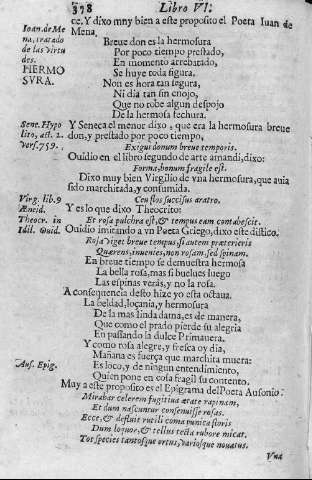 378
Libro VI.
ce. Y dixo muy bien a este proposito el Poeta Iuan de
Mena.
Ioan. de Me
na, tratado
de las virtu
des.
HERMO
SVRA.
Breue don es la hermosura
Por poco tiempo prestado,
En momento arrebatado,
Se huye toda sigura.
Non es hora tan segura,
Ni dia tan sin enojo,
Que no robe algun despojo
De la hermosa fechura.
Sene. Hypo
lito, act. 2.
vers. 759.
Y Seneca el menor dixo, que era la hermosura breue
don, y prestado por poco tiempo,
Exigui donum breue temporis.
Ouidio en el libro segundo de arte amandi, dixo:
Forma, bonum fragile est.
Dixo muy bien Virgilio de vna hermosura, que auia
sido marchitada, y consumida.
Virg. lib. 9
Æneid.
Theocr. in
Idil. Ouid.
Ceu flos succisus aratro.
Y es lo que dixo Theocrito:
Et rosa pulchra est, & tempus eam contabescit.
Ouidio imitando a vn Poeta Griego, dixo este distico.
Rosa viget breue tempus, si autem præterieris
Quærens, inuenies, non rosam, sed spinam.
En breue tiempo se demuestra hermosa
La bella rosa, mas si buelues luego
Las espinas verás, y no la rosa.
A consequencia desto hize yo esta octaua.
La beldad, loçania, y hermosura
De la mas linda dama, es de manera,
Que como el prado pierde su alegria
En passando la dulce Primauera,
Y como rosa alegre, y fresca oy dia,
Mañana es fuerça que marchita muera:
Es loco, y de ningun entendimiento,
Quien pone en cosa fragil su contento.
Aus. Epig.
Muy a este proposito es el Epigrama del Poeta Ausonio.
Mirabar celerem fugitiua ætate rapinam,
Et dum nascuntur consenuisse rosas.
Ecce, & defluit rutili coma punica floris
Dum loquor, & tellus tecta rubore micat.
Tot species tantosque ortus, variosque nouatus.
Vna